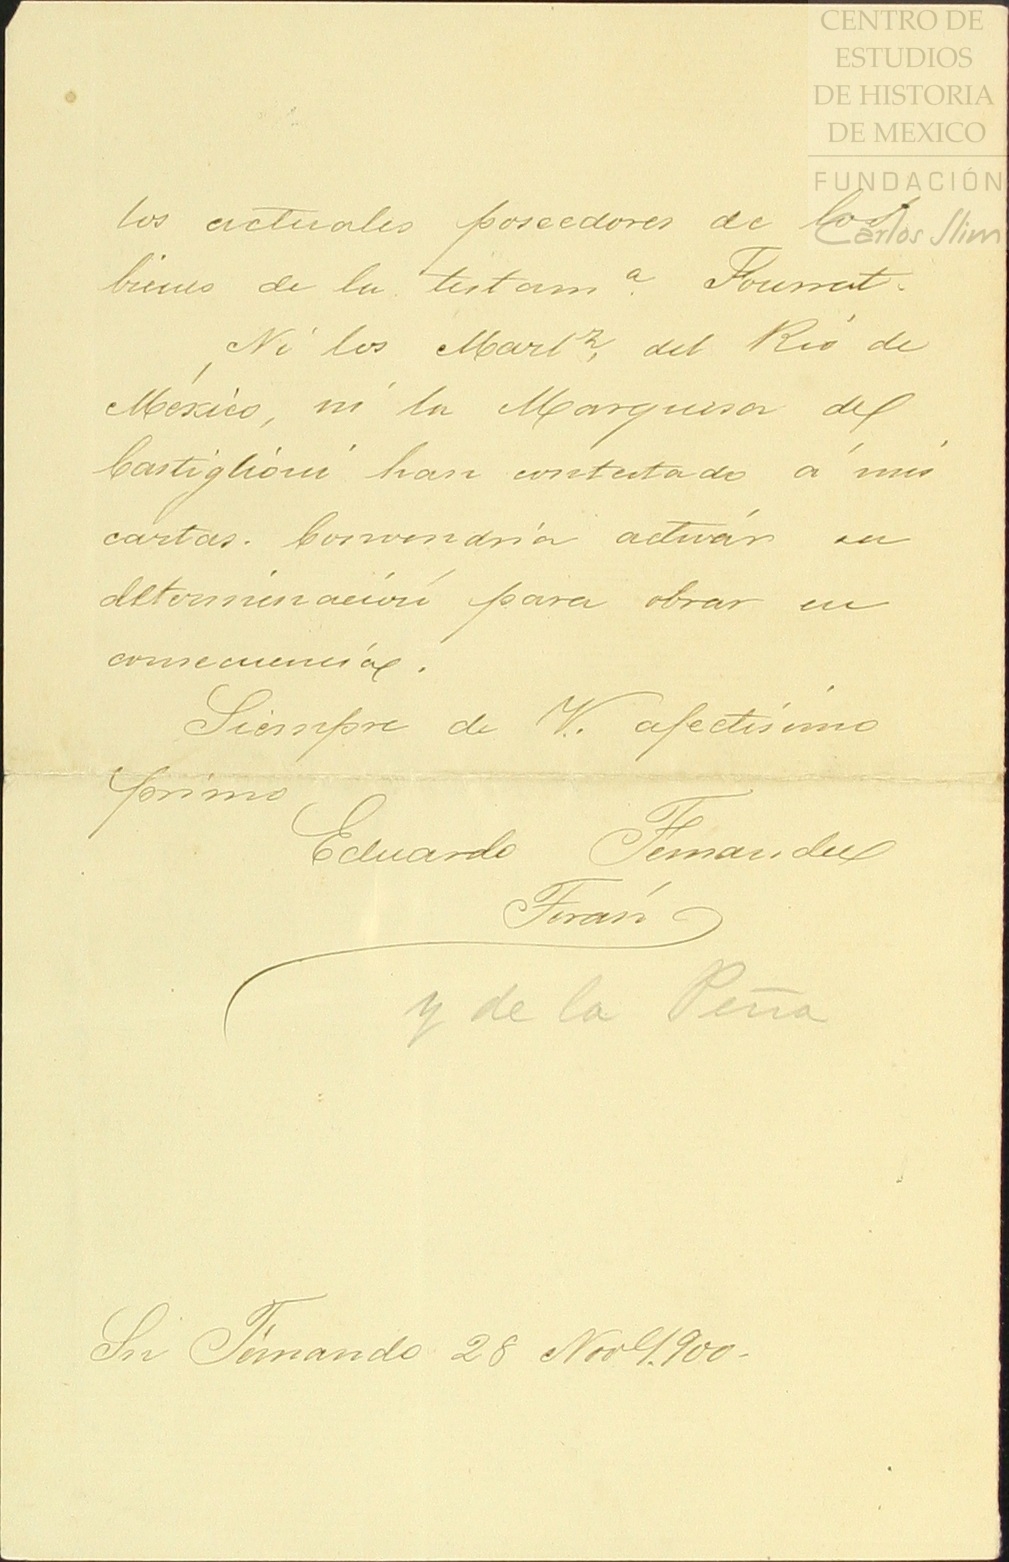 CENTRO DE
ESTUDIOS
DE HISTORIA
DE MEXICO
FUNDACIÓN
Carlos Slim
los actuales poseedores de los
bienes de la testamª.
Ni los Martz. del Rio de
México, ni la Marquesa del
Castiglioni han contestado á mis
cartas. Convendría activár su
determinación para obrar en
consecuencia.
Siempre de V. afectisimo
primo
Eduardo Fernandez
Terán
y de la Peña
Sn Fernando 28 Nov 1.900.